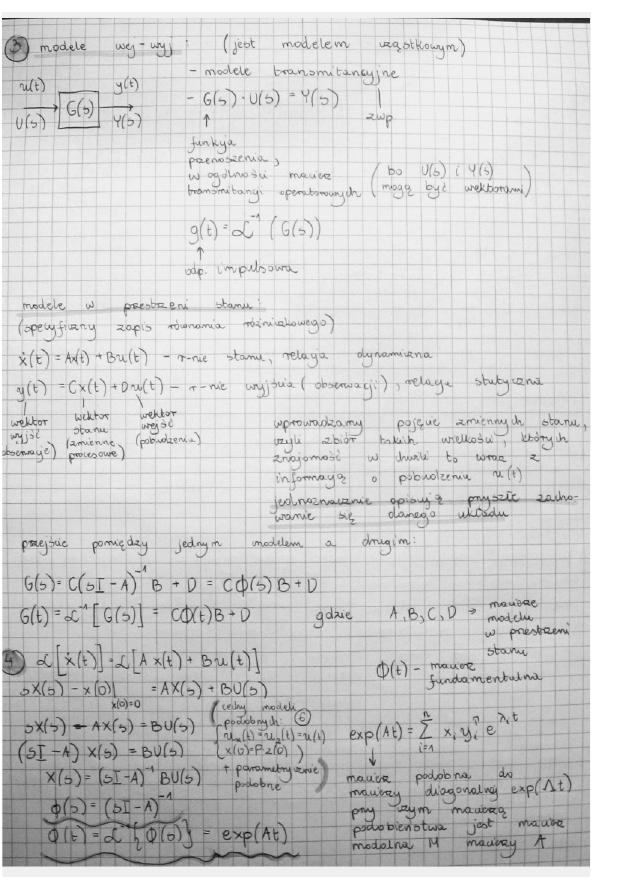 3 modele wej-wyj : (jest modelem cząstkowym)
- modele transmitancyjne
u(t) y(t)
G(s)
U(s) Y(s)
- G(s)·U(s) = Y(s)
zwp
funkcja
przenoszenia,
w ogólności macierz
transmitancji operatorowych (bo U(s) i Y(s)
mogą być wektorami)
g(t) = ℒ⁻¹ (G(s))
odp. impulsowa
modele w przestrzeni stanu:
(specyficzny zapis równania różniczkowego)
ẋ(t) = Ax(t) + Bu(t) - r-nie stanu, relacja dynamiczna
y(t) = Cx(t) + Du(t) - r-nie wyjścia (obserwacji), relacja statyczna
wektor wyjść (obserwacje)
wektor stanu (zmienne procesowe)
wektor wejść (pobudzenia)
wprowadzamy pojęcie zmiennych stanu,
czyli zbiór takich wielkości, których
znajomość w chwili t0 wraz z
informacją o pobudzeniu u(t)
jednoznacznie opisują przyszłe zacho-
wanie się danego układu
przejście pomiędzy jednym modelem a drugim:
G(s) = C(sI-A)⁻¹ B + D = Cϕ(s)B + D
G(t) = ℒ⁻¹ [G(s)] = Cϕ(t)B + D gdzie A,B,C,D → macierze
modelu
w przestrzeni
stanu
ϕ(t) - macierz
fundamentalna
4 ℒ[ẋ(t)] = ℒ[Ax(t) + Bu(t)]
sX(s) - x(0)| x(0)=0 = AX(s) + BU(s)
sX(s) - AX(s) = BU(s)
(sI-A) X(s) = BU(s)
X(s) = (sI-A)⁻¹ BU(s)
ϕ(s) = (sI-A)⁻¹
ϕ(t) = ℒ⁻¹{ϕ(s)} = exp(At)
(cechy modeli
podobnych: 6
u₁(t) = u₂(t) = u(t)
x(0) = Pz(0)
+ parametrycznie
podobne)
exp(At) = Σ i=1 n xᵢ yᵢᵀ e^λᵢt
macierz podobna do
macierzy diagonalnej exp(Λt)
przy czym macierzą
podobieństwa jest macierz
modalna M macierzy A